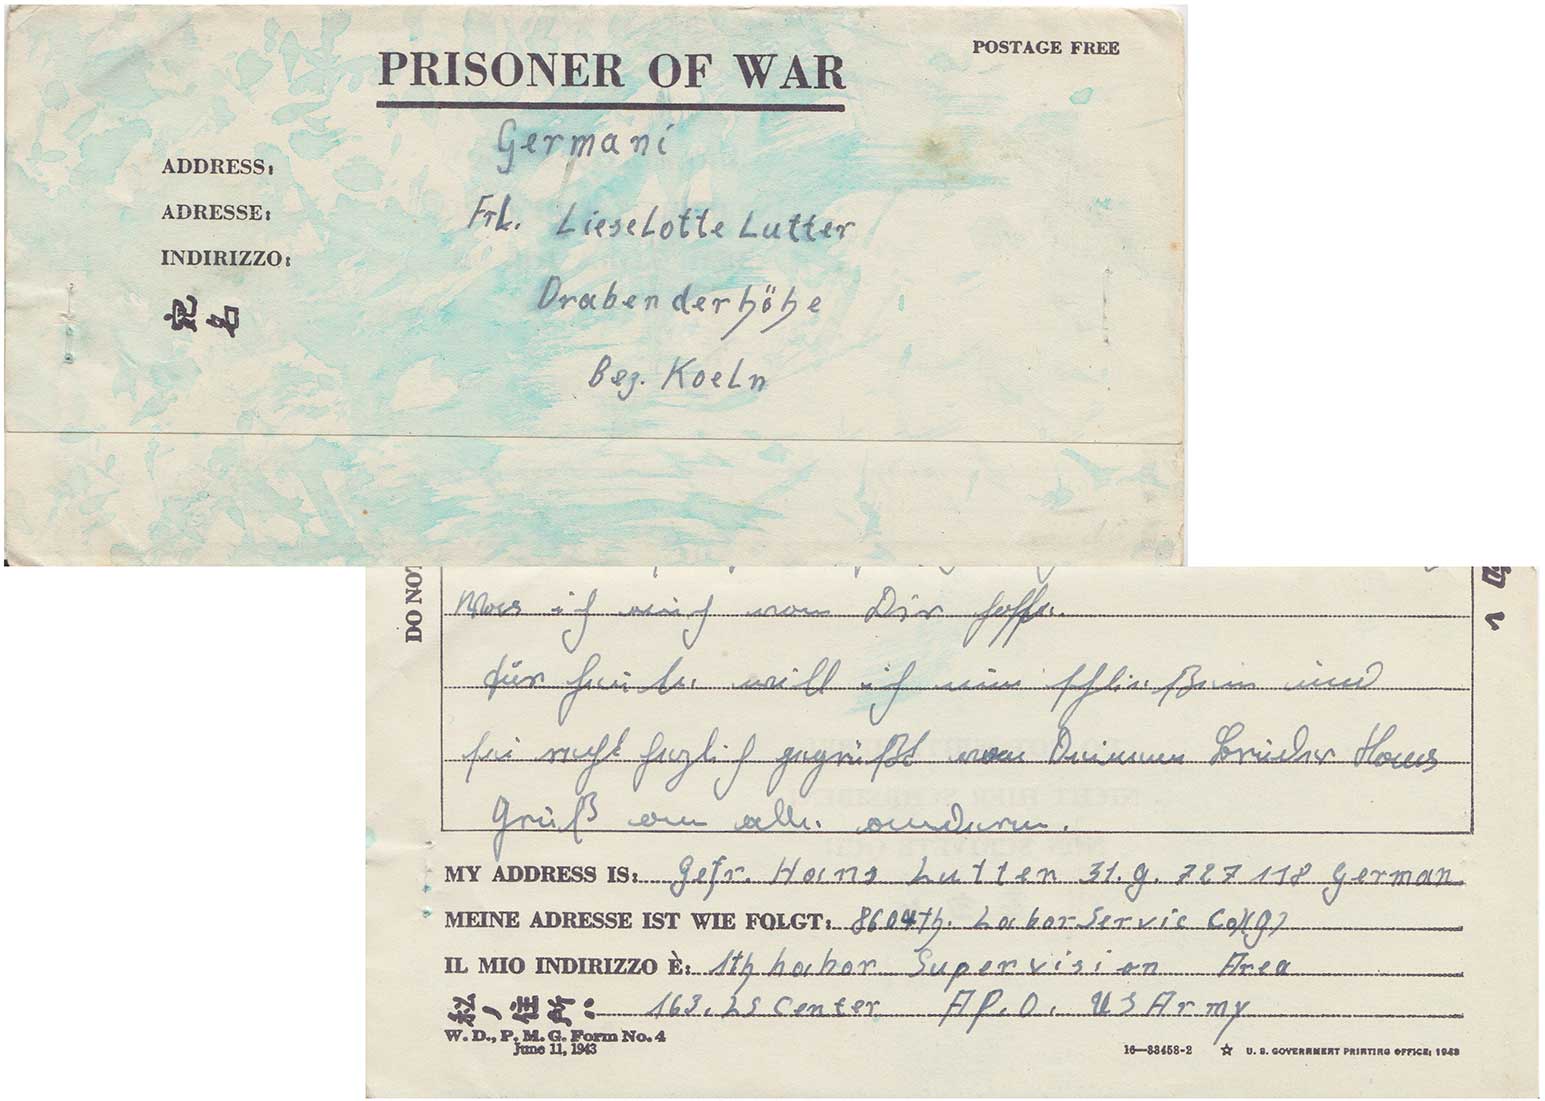 POSTAGE FREE
PRISONER OF WAR
Germani
ADDRESS:
ADRESSE:
Frl. Lieselotte Lutter
INDIRIZZO:
Drabenderhöhe
宛名
Bez. Koeln
DO NOT
Was ich auch von Dir hoffe.
für heute will ich nun schließen und
sei recht herzlich gegrüßt von Deinem Bruder Hans
Gruß an alle anderen.
MY ADDRESS IS: Gefr. Hans Lutter 31.g. 727 118 German
MEINE ADRESSE IST WIE FOLGT: 8604th. Labor Servic Co(g)
IL MIO INDIRIZZO È: 1th Labor Supervision Area
私ノ住所: 163. LS Center A.P.O. US Army
W. D., P. M. G. Form No. 4
June 11, 1943
16—33458-2 ☆ U. S. GOVERNMENT PRINTING OFFICE: 1943